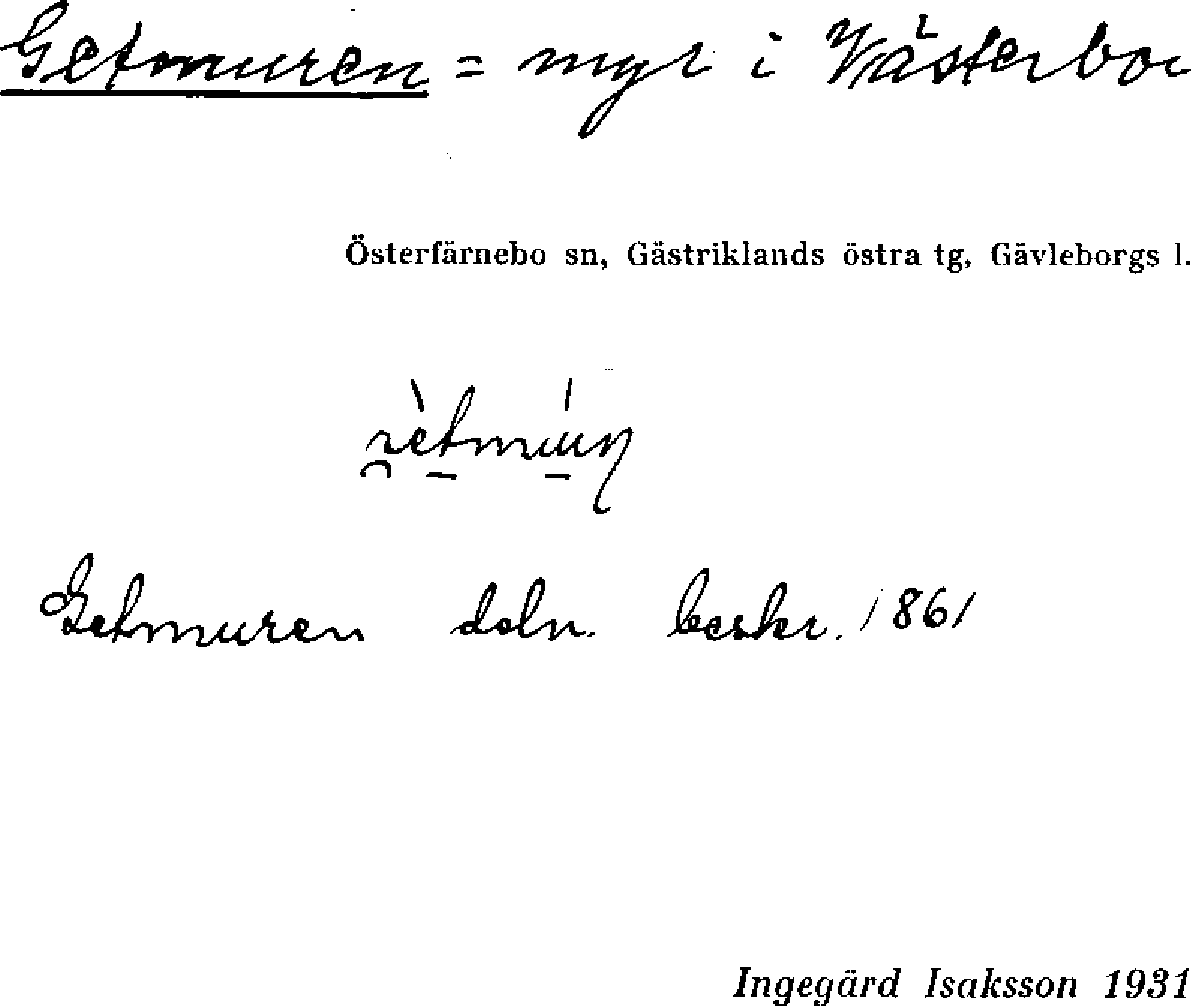 Getmuren = myr i Västerbor
Österfärnebo sn, Gästriklands östra tg, Gävleborgs l.
Getmuren doln. beskr. 1861
Ingegärd Isaksson 1931